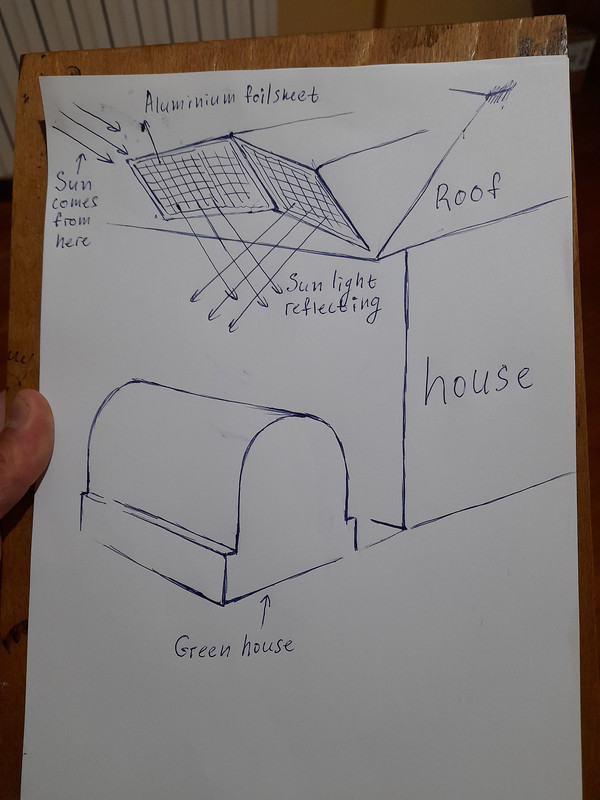 Aluminium foilsheet
Sun
comes
from
here
Roof
Sun light
reflecting
house
Green house